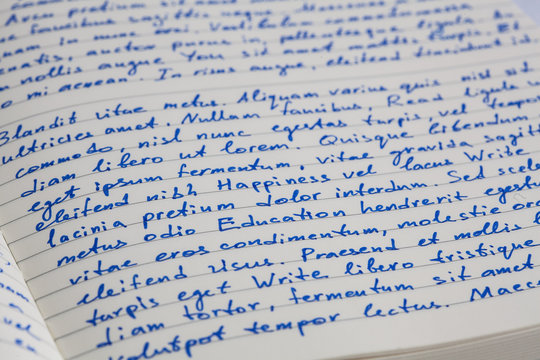 Arcu pretium sit
faucibus sagittis
nam in nunc orci. Vestibulum
enatis, auctor purus in, pellentesque ligula
nollis augue You sit amet mattis turpis. Et
o mi aenean. In risus augue, eleifend tincidunt id.
Blandit vitae metus. Aliquam varius quis nisl sit
ultricies amet. Nullam faucibus, Read ligula
commodo, nisl nunc egestas turpis, vel tempor
diam libero ut lorem. Quisque bibendum
eget ipsum fermentum, vitae gravida sagitt
eleifend nibh Happiness vel lacus Write
lacinia pretium dolor interdum. Sed scele
metus odio Education hendrerit egestu
vitae eros condimentum, molestie orc
eleifend risus. Praesend et mollis
turpis eget Write libero tristique
diam tortor, fermentum sit amet
volutpot tempor lectus. Maec
vel
em